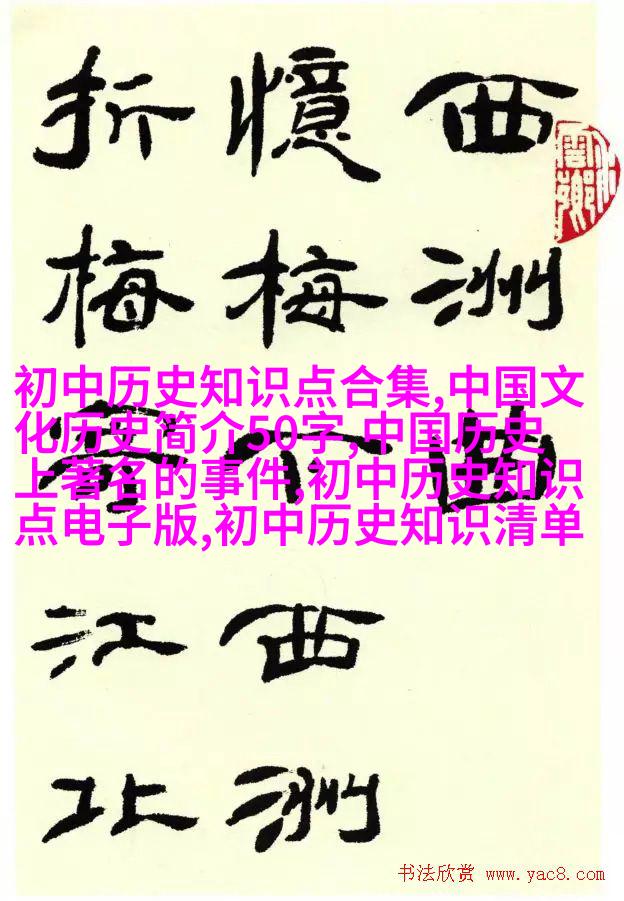 西洲曲
憶梅下西洲
折梅寄江北
初中历史知识点合集,中国文
化历史简介50字,中国历史
上著名的事件,初中历史知识
点电子版,初中历史知识清单
书法欣赏 www.yac8.com